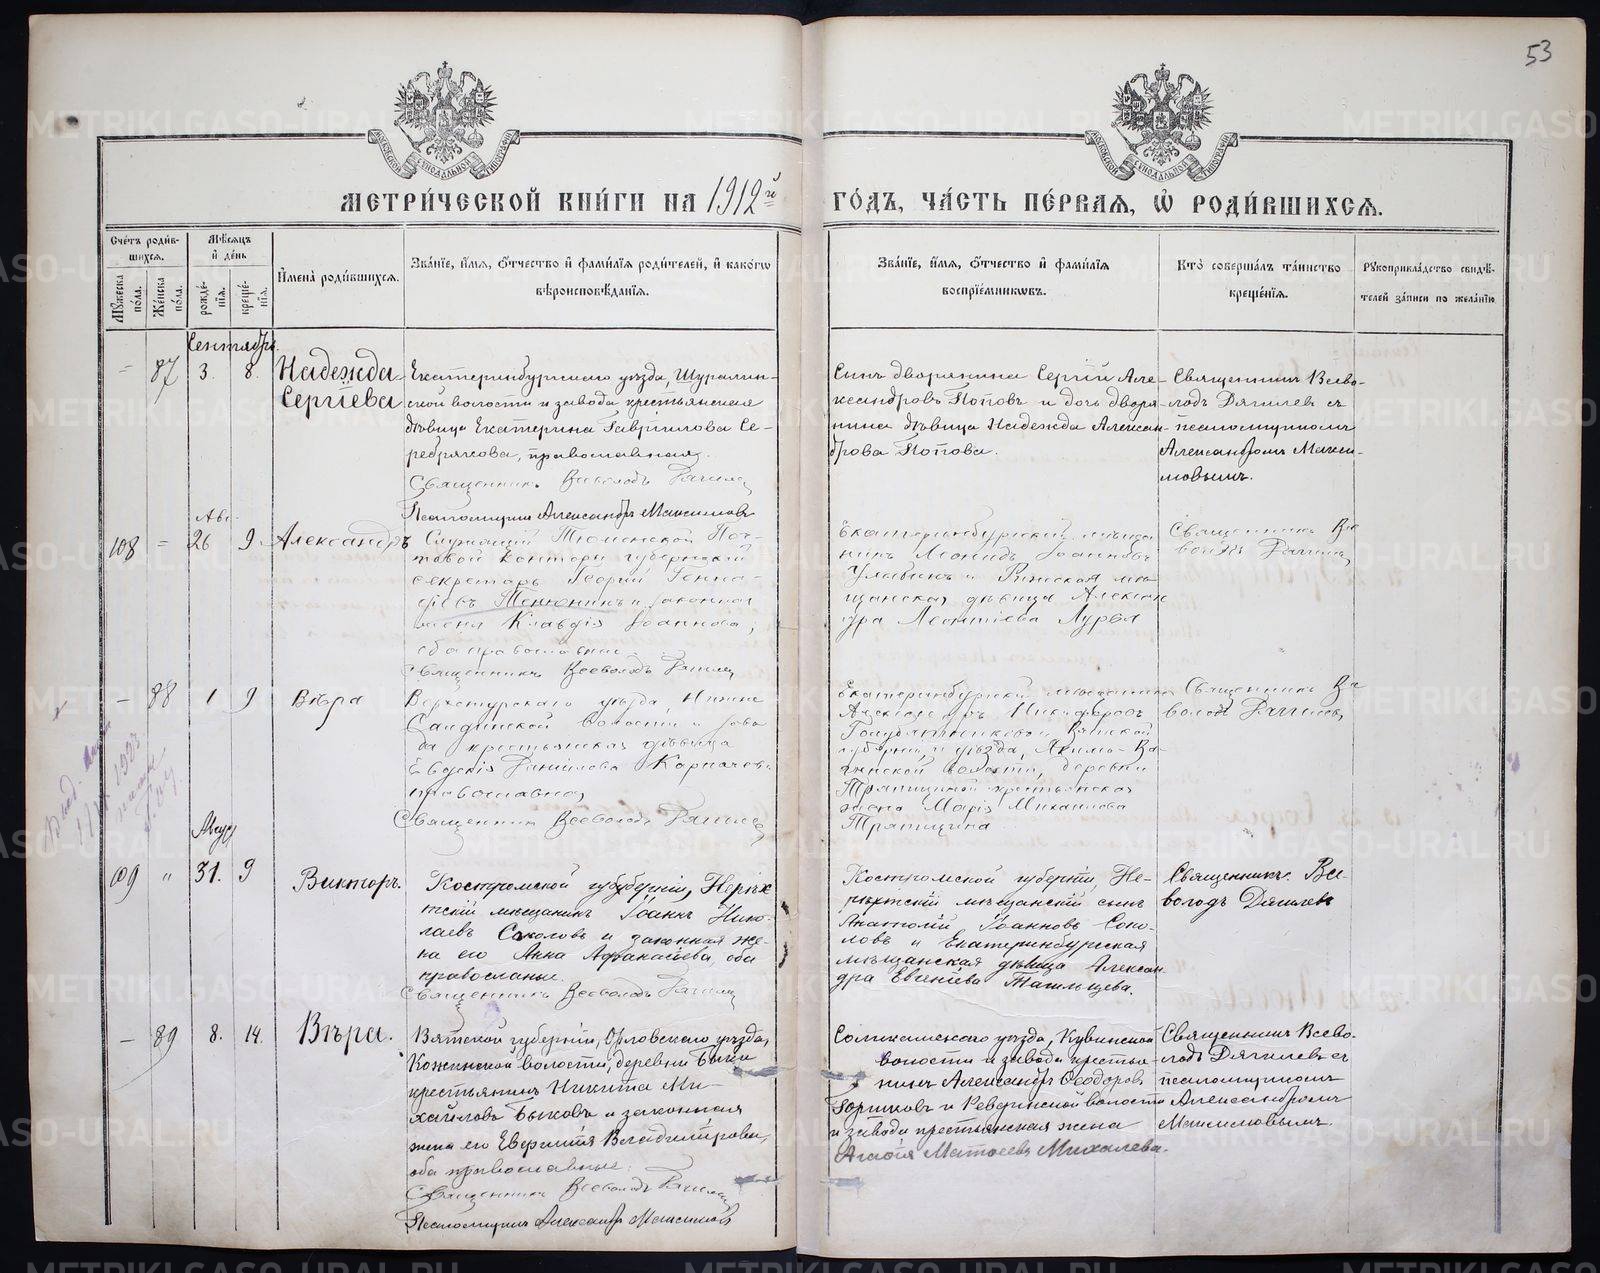 53
МЕТРИ́ЧЕСКОЙ КНИ́ГИ НА 1912й ГО́ДЪ, ЧА́СТЬ ПЕ́РВАЯ, Ѡ РОДИ́ВШИХСЯ.
Сче́тъ роди́в-
шихся.
Мѣ́сяцъ
и҆ де́нь
Му́жеска по́ла.
Же́нска по́ла.
рожде́-
нїѧ.
креще́-
нїѧ.
И҆мена̀ роди́вшихся.
Зва́нїе, и҆́мя, ѻ҆́тчество и҆ фами́лїя роди́телей, и҆ како́гѡ
вѣроисповѣ́данїя.
Зва́нїе, и҆́мя, ѻ҆́тчество и҆ фами́лїя
воспрїе́мникѡвъ.
Кто̀ соверша́лъ та́инство
креще́нїя.
Рꙋкоприкла́дство свидѣ́-
телей за́писи по жела́нїю
Сентябрь.
–
87
3.
8.
Надежда
Сергіева
Екатеринбургскаго уѣзда, Шуралин-
ской волости и завода крестьянская
дѣвица Екатерина Гавріилова Се-
ребрякова, православная.
Священникъ Всеволодъ Дягилев
Псаломщикъ Александръ Максимовъ
Сынъ дворянина Сергій Але-
ксандровъ Поповъ и дочь дворя-
нина дѣвица Надежда Алексан-
дрова Попова.
Священникъ Всево-
лодъ Дягилевъ съ
псаломщикомъ
Александромъ Макси-
мовымъ.
Авг.
108
–
26
9
Александръ
Служащій Тюменской Поч-
товой Конторы губернскій
секретарь Георгій Генна-
діевъ и законная
жена Клавдія Іоаннова,
оба православные
Священникъ Всеволодъ Дягилев
Екатеринбургскій мѣща-
нинъ Леонидъ Іоанновъ
и Рижская мѣ-
щанская дѣвица Алексан
дра Леонтіева
Священникъ Все
володъ Дягилевъ
–
88
1
9
Вѣра
Верхотурскаго уѣзда, Нижне
Салдинской волости и заво
да крестьянская дѣвица
Евдокія Даніилова
православная
Священникъ Всеволодъ Дягилев
Екатеринбургскій мѣщанинъ
Александръ Никифоровъ
и Вятской
губерніи и уѣзда,
волости, деревни
крестьянская
жена Марія Михаилова
Священникъ Все
володъ Дягилевъ
1923
Август
109
"
31.
9
Викторъ.
Костромской губуберніи, Нерехт
скій мѣщанинъ Іоаннъ Нико-
лаевъ Соколовъ и законная же-
на его Анна Афанасіева, оба
православные.
Священникъ Всеволодъ Дягилев
Костромской губерніи, Не-
рехтскій мѣщанскій сынъ
Анатолій Іоанновъ Соко-
ловъ и Екатеринбургская
мѣщанская дѣвица Алексан
дра Евгеніева
Священникъ Все-
володъ Дягилевъ
–
89
8.
14.
Вѣра.
Вятской губерніи, Орловскаго уѣзда,
волости, деревни Быки
крестьянинъ Никита Ми-
хайловъ Быковъ и законная
жена его Евфимія Владимірова,
оба православные.
Священникъ Всеволодъ Дягилев
Псаломщикъ Александръ Максимовъ
Соликамскаго уѣзда, Кувинской
волости и завода крестья-
нинъ Александръ Ѳеодоровъ
Горшковъ и Ревдинской волости
и завода крестьянская жена
Агафія Матѳеева Михалева.
Священникъ Всево-
лодъ Дягилевъ съ
псаломщикомъ
Александромъ
Максимовымъ.
METRIKI.GASO-URAL.RU